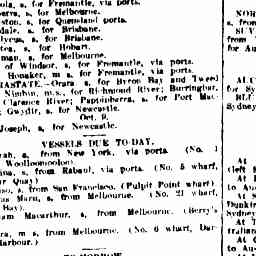 ola, s, for Fremantle, via ports.
arra, s, for Melbourne.
ston, s, for Queensland ports.
dale, s, for Brisbane.
lycus, s, for Brisbane.
tea, s, for Hobart.
man, s, for Melbourne.
of Windsor, s, for Fremantle, via ports.
Honaker, m s, for Fremantle, via ports.
HASTATE.—Orara, s, for Byron Bay and Tweed
Nimbin, m.s., for Richmond River; Burringbar,
Clarence River; Pappinbarra, s, for Port Mac-
; Gwydir, s, for Newcastle.
Oct. 9.
Joseph, s, for Newcastle.
VESSELS DUE TO-DAY.
ah, s, from New York, via ports. (No. 1
Woolloomooloo).
ina, s, from Rabaul, via ports. (No. 5 wharf,
ar Quay)
nso, s, from San Francisco. (Pulpit Point wharf)
us Maru, s, from Melbourne. (No. 21 wharf,
Bay).
iam Macarthur, s, from Melbourne. (Berry's
ra, m s, from Melbourne. (No. 6 wharf, Dar-
Harbour.)
NOR
s, from
SUV
from
for Au
ALU
for Sy
BLU
Sydney
At
(left
At
to Au
At
Dunkir
Sydney
At T
tralian
At
to Au
At